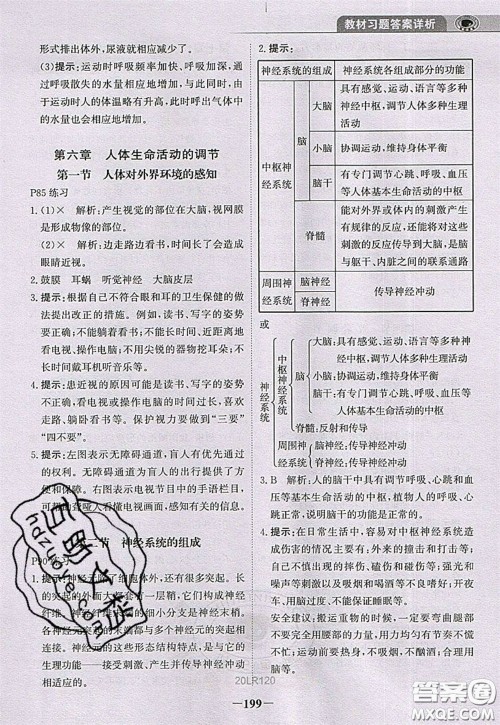 教材习题答案详析
形式排出体外，尿液就相应减少了。
(3)提示：运动时呼吸频率加快、呼吸深度增加，通
过呼吸散失的水量也会相应地增加。此外，由
于运动时人的体温略有升高，此时呼出气体中
的水量也会相应地增加。
第六章　人体生命活动的调节
第一节　人体对外界环境的感知
P85 练习
1. (1)×　解析：产生视觉的部位在大脑，视网膜
是形成物像的部位。
(2)×　解析：边走路边看书，时间长了会造成
眼睛近视。
2. 鼓膜　耳蜗　听觉神经　大脑皮层
3. 提示：根据自己不符合眼和耳的卫生保健的做
法提出改正的措施。例如，看书、写字的姿势
要正确；不能躺着看书；不能长时间看书、看电
脑、看电视、操作电脑；不用尖锐的器物挖耳朵；不长
时间戴耳机听音乐等。
4. 提示：患近视的原因可能是读书、写字的姿势
不正确，读书、写字时间过长；有不良习惯，喜欢
走路、躺卧看书等。保护视力要做到“三要”
“四不要”。
5. 提示：左图表示无障碍通道，盲人无法通过视
觉感知道路，无障碍通道为盲人提供了安全、方
便和保障。右图图表示电视节目中的手语栏栏，
可帮助聋哑人看懂电视中的图像所示的内容。
第二节　神经系统的组成
P90 练习
1. 提示：神经元除了细胞体外，还有许多突起，有
的突起外面大都套有一层鞘，它们成为神经纤
维，神经纤维末端的细小分支叫作神经末梢。
各神经元突起的末端都与多个神经元的突起相
连接。神经元的这些形态结构特点，是与它的
生理功能——接受刺激，产生并传导神经冲动
相适应的。
2. 提示：
神经系统的组成　神经系统各组成部分的功能
中枢神经系统　脑　大脑　具有感觉、运动、语言等多种生命活动的功能区——神经中枢，调节人体多种生理活动
小脑　协调运动，维持身体平衡
脑干　有专门调节心跳、呼吸、血压等人体基本生命活动的中枢
脊髓　能对外界或体内的刺激产生有规律的反应，还能将对这些刺激的反应传导到大脑，是脑与躯干、内脏之间的联系通路
周围神经系统　脑神经　脊神经　传导神经冲动
或
神经系统
中枢神经系统
脑
大脑：具有感觉、运动、语言等多种神
经中枢，调节人体多种生理活动
小脑：协调运动，维持身体平衡
脑干：有专门调节心跳、呼吸、血压等
人体基本生命活动的中枢
脊髓：反射和传导
周围神经系统
脑神经：传导神经冲动
脊神经：传导神经冲动
3. B　解析：人的脑干中有调节呼吸、心跳和血
压等基本生命活动的中枢，植物人的呼吸、心跳
和血压等正常，因此，脑干没有受到损伤。
4. 提示：在日常生活中，容易对中枢神经系统造
成伤害的情况有：外来的撞击和打击等；
自己不慎摔伤；自然灾害、交通事故；噪声和强
光、电击等；煤气中毒、吸毒和酗酒等。
安全建议：搬运重物的时候，一定要小心；不慎
摔倒时，尽量不要让头部着地；体育运动前，一
定要先做热身运动，避免剧烈运动；遵守交通规
则，避免交通事故；不酗酒等。
20LR120
199
百助好榜
答案圈
MXQE.COM